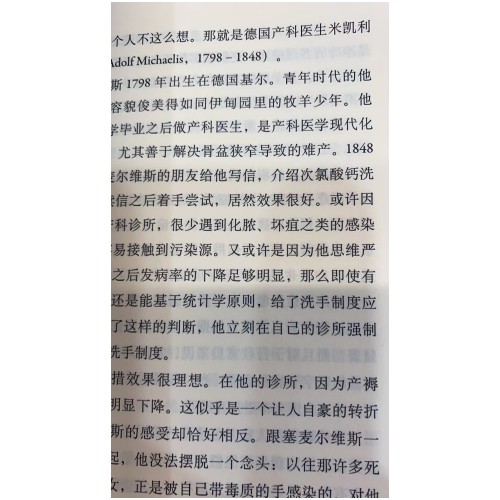 个人不这么想。那就是德国产科医生米凯利
Adolf Michaelis，1798－1848）。
斯1798年出生在德国基尔。青年时代的他
容貌俊美得如同伊甸园里的牧羊少年。他
学毕业之后做产科医生，是产科医学现代化
尤其善于解决骨盆狭窄导致的难产。1848
麦尔维斯的朋友给他写信，介绍次氯酸钙洗
信之后着手尝试，居然效果很好。或许因
产科诊所，很少遇到化脓、坏疽之类的感染
易接触到污染源。又或许是因为他思维严
之后发病率的下降足够明显，那么即使有
还是能基于统计学原则，给了洗手制度应
了这样的判断，他立刻在自己的诊所强制
洗手制度。
措效果很理想。在他的诊所，因为产褥
明显下降。这似乎是一个让人自豪的转折
斯的感受却恰好相反。跟塞麦尔维斯一
起，他没法摆脱一个念头：以往那许多死
女，正是被自己带毒质的手感染的。对他